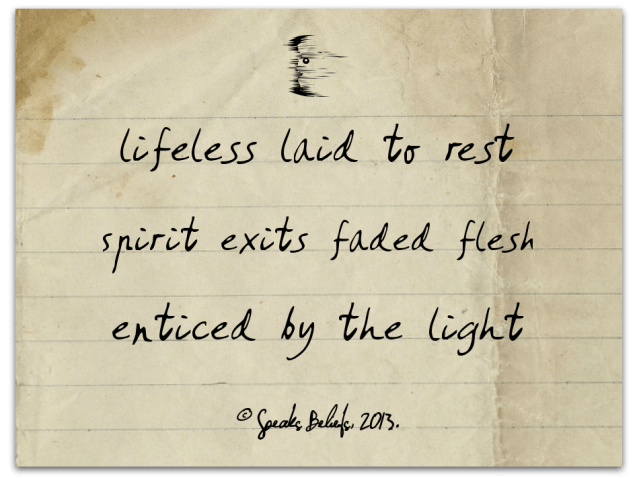 lifeless laid to rest
spirit exits faded flesh
enticed by the light
© Speaks Beliefs, 2013.